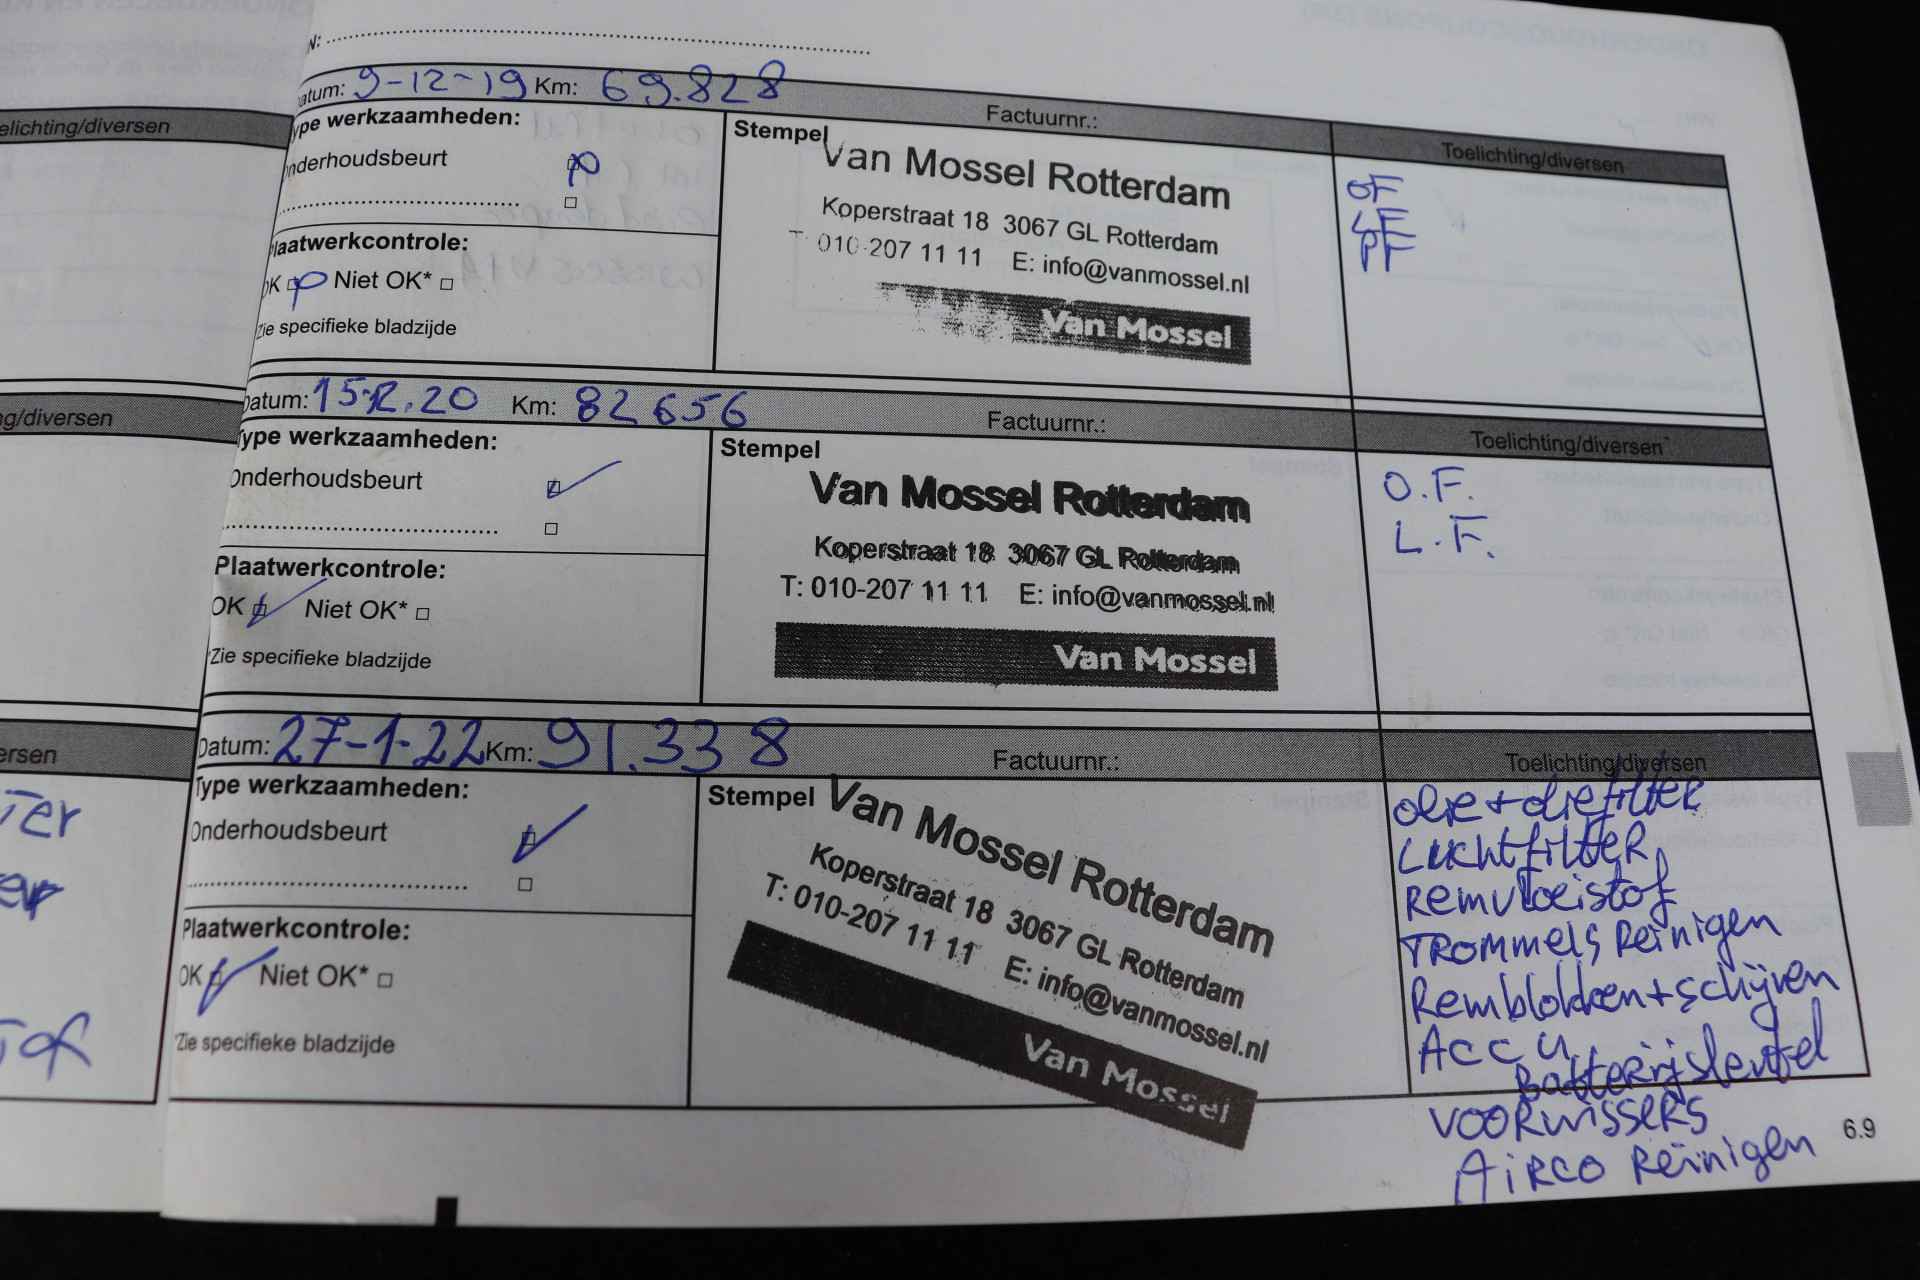 N:
Datum: 9-12-19 Km: 69.828 Factuurnr.: Toelichting/diversen
Type werkzaamheden:
Onderhoudsbeurt
Plaatwerkcontrole:
OK Niet OK*
*Zie specifieke bladzijde
Stempel
Van Mossel Rotterdam
Koperstraat 18 3067 GL Rotterdam
T: 010-207 11 11 E: info@vanmossel.nl
Van Mossel
OF
LF
PF
Datum: 15-12.20 Km: 82656 Factuurnr.: Toelichting/diversen
Type werkzaamheden:
Onderhoudsbeurt
Plaatwerkcontrole:
OK Niet OK*
*Zie specifieke bladzijde
Stempel
Van Mossel Rotterdam
Koperstraat 18 3067 GL Rotterdam
T: 010-207 11 11 E: info@vanmossel.nl
Van Mossel
O.F.
L.F.
Datum: 27-1-22 Km: 91.338 Factuurnr.: Toelichting/diversen
Type werkzaamheden:
Onderhoudsbeurt
Plaatwerkcontrole:
OK Niet OK*
*Zie specifieke bladzijde
Stempel
Van Mossel Rotterdam
Koperstraat 18 3067 GL Rotterdam
T: 010-207 11 11 E: info@vanmossel.nl
Van Mossel
olie + oliefilter
Luchtfilter
Remvloeistof
Trommels Reinigen
Remblokken + schijven
Accu
Batterijsleutel
Voorwissers
Airco Reinigen
6.9
elichting/diversen
ng/diversen
ersen